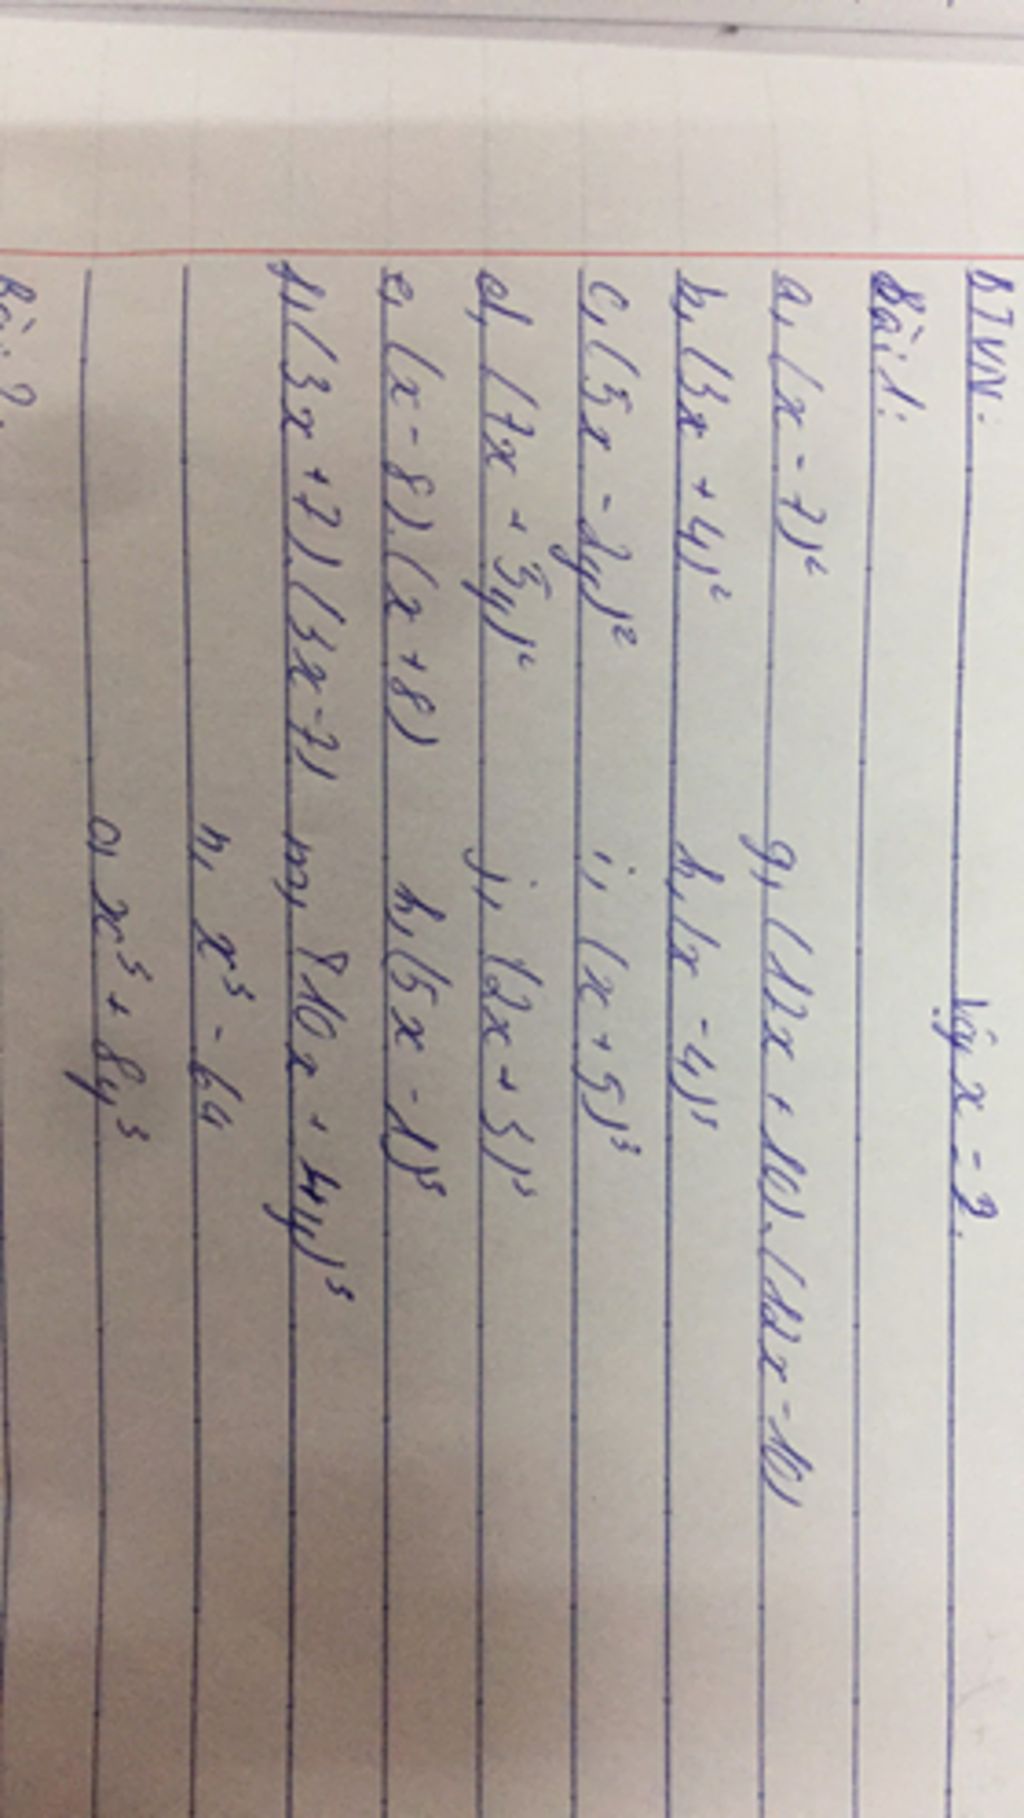 Vậy x = 2.
BTVN:
Bài 1:
a, (x - 7)²
g, (12x + 10).(12x - 10)
b, (3x + 4)²
h, (x - 4)³
c, (5x - 2y)²
i, (x + 5)³
d, (7x + 3y)²
j, (2x + 3)³
e, (x - 8).(x + 8)
k, (5x - 1)³
f, (3x + 7).(3x - 7)
m, 10x + 4y)³
n, x³ - 64
o, x³ + 8y³
Bài 2.